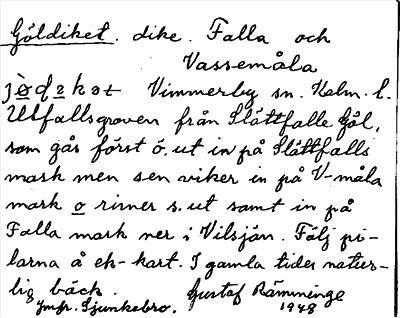 Göldiket. dike. Falla och
Vassemåla
Vimmerby sn. Kalm. l.
Utfallsgraven från Slättfalle Göl,
som går först ö. ut in på Slättfalls
mark men sen viker in på V-måla
mark o rinner s. ut samt in på
Falla mark ner i Vilsjön. Följ pi-
larna å ek-kart. I gamla tider natur-
lig bäck. Gustaf Rämminge
Jmfr. Sjunkebro. 1948